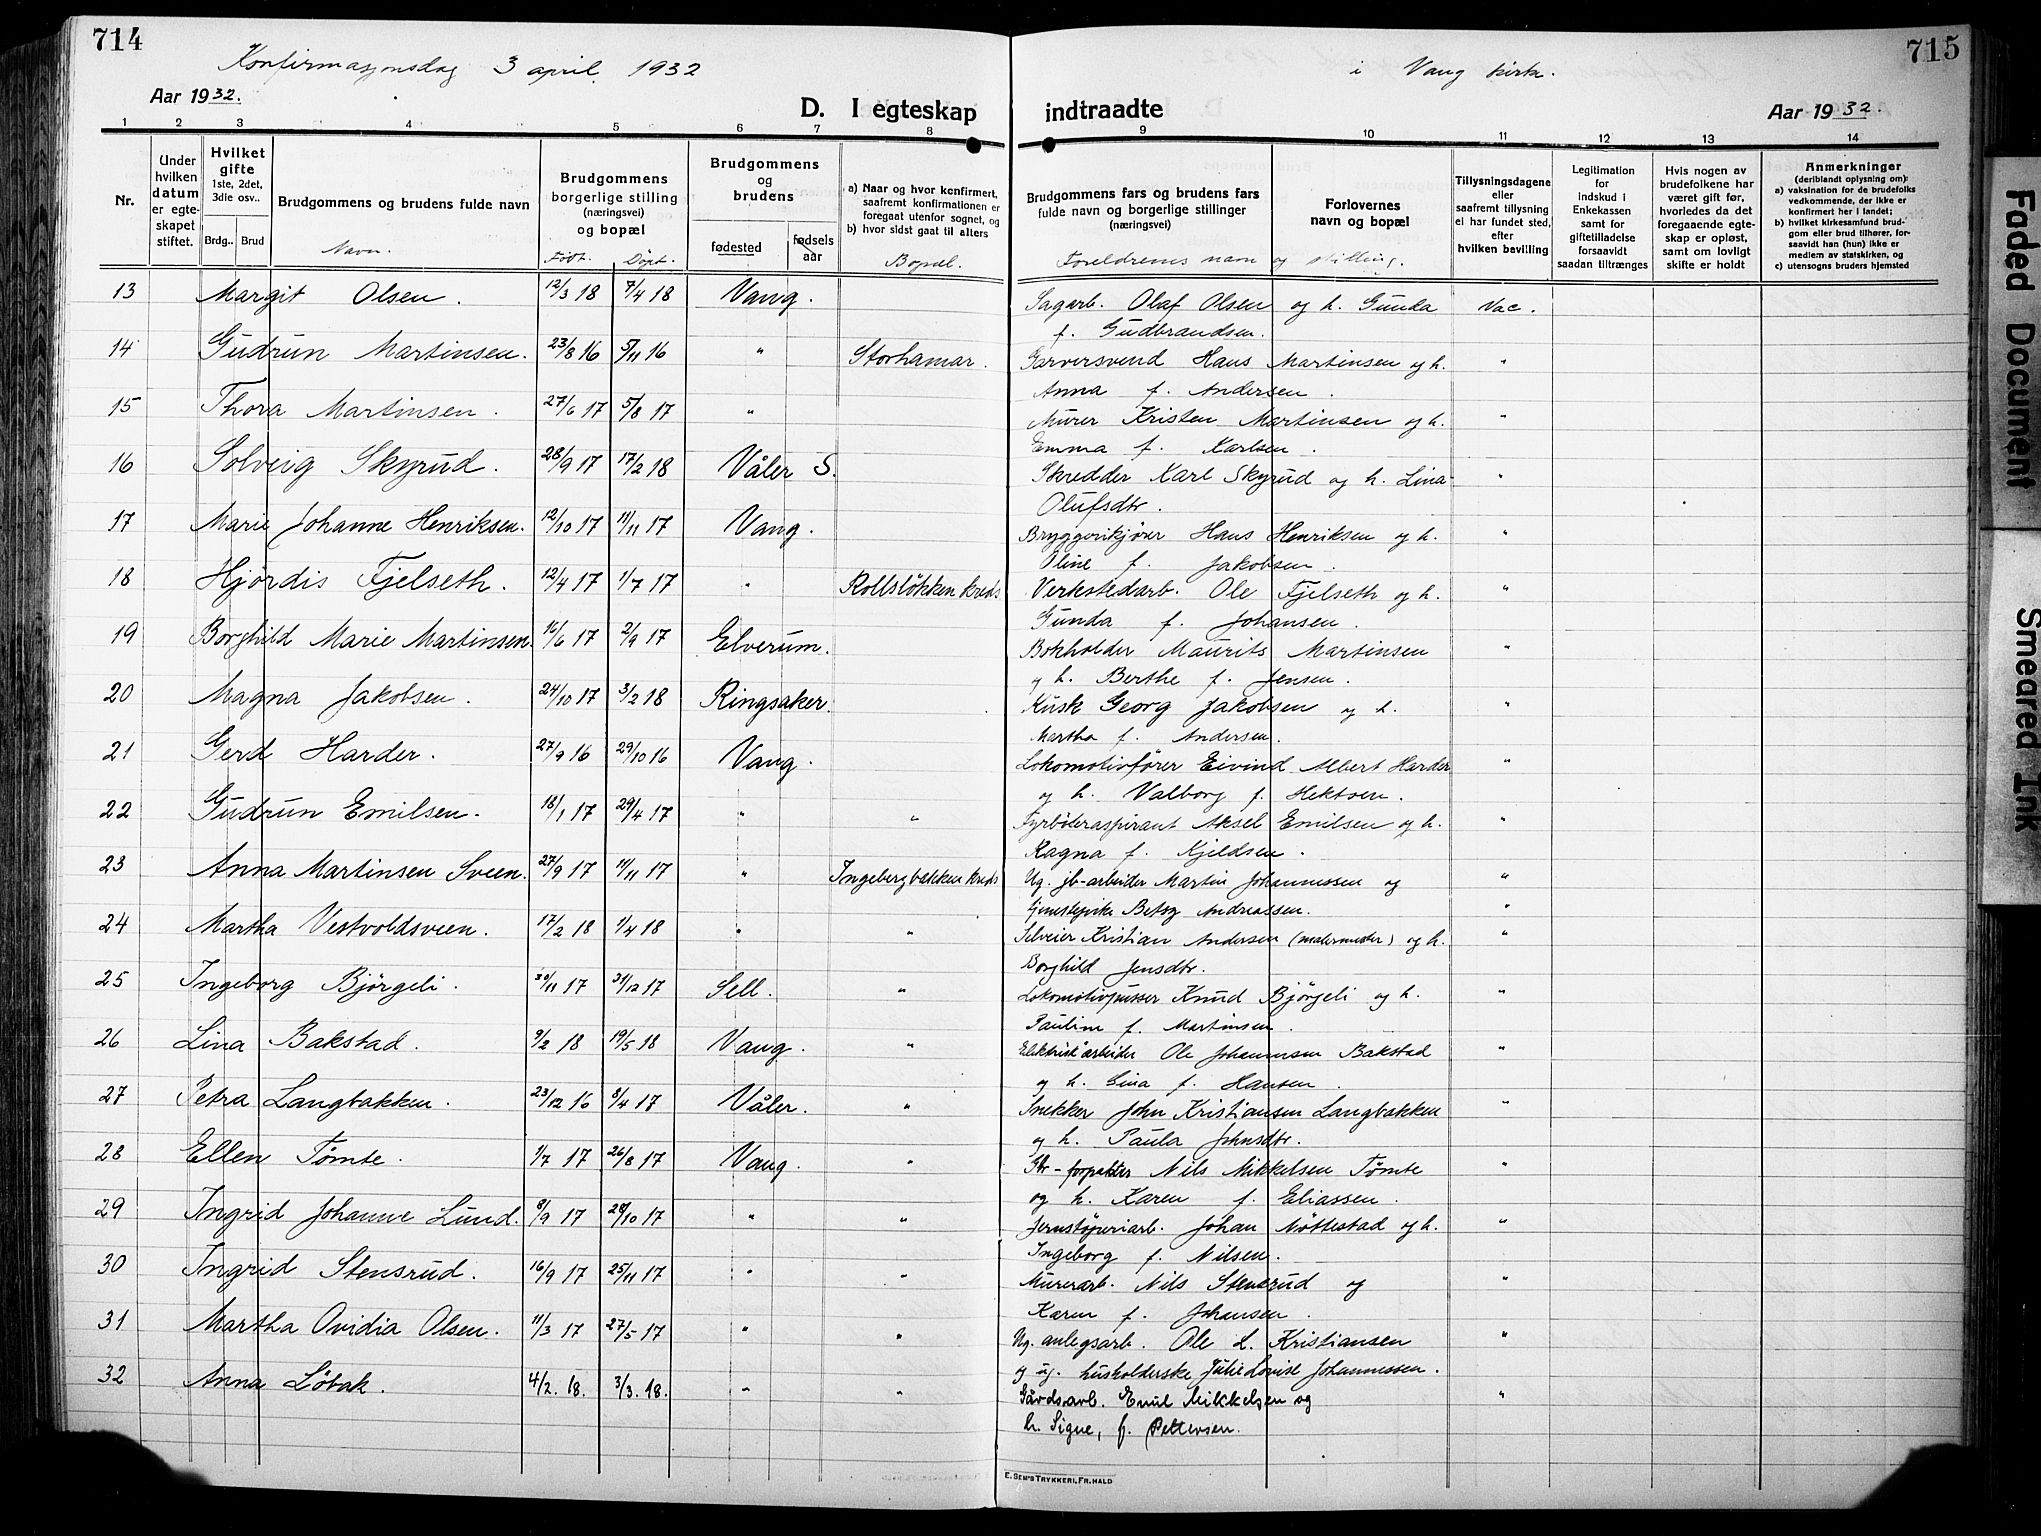 714
715
Konfirmasjonsdag 3 april 1932
i Vang kirke.
Aar 1932.
D. I egteskap
indtraadte
Aar 1932.
1 2 3 4 5 6 7 8 9 10 11 12 13 14
Nr.
Under hvilken datum er egteskapet stiftet.
Hvilket gifte 1ste, 2det, 3die osv..
Brdg.. Brud
Brudgommens og brudens fulde navn
Navn.
Brudgommens borgerlige stilling (næringsvei) og bopæl
Født. Døpt.
Brudgommens og brudens
fødested
fødsels aar
a) Naar og hvor konfirmert, saafremt konfirmationen er foregaat utenfor sognet, og
b) hvor sidst gaat til alters
Bopæl.
Brudgommens fars og brudens fars fulde navn og borgerlige stillinger (næringsvei)
Foreldrenes navn og stilling.
Forlovernes navn og bopæl
Tillysningsdagene eller saafremt tillysning ei har fundet sted, efter hvilken bevilling
Legitimation for indskud i Enkekassen samt for giftetilladelse forsaavidt saadan tiltrænges
Hvis nogen av brudefolkene har været gift før, hvorledes da det foregaaende egteskap er opløst, samt om lovligt skifte er holdt
Anmerkninger (deriblandt oplysning om):
a) vaksination for de brudefolks vedkommende, der ikke er konfirmert her i landet;
b) hvilket kirkesamfund brudgom eller brud tilhører, forsaavidt han (hun) ikke er medlem av statskirken, og
c) utensogns bruders hjemsted
13 Margit Olsen. 12/3 18 7/4 18 Vang. Sagarb. Olaf Olsen og h. Gunda Vac.
f. Gudbrandsen.
14 Gudrun Martinsen. 23/8 16 5/11 16 " Storhamar. Garversvend Hans Martinsen og h. "
Anna f. Andersen.
15 Thora Martinsen. 27/6 17 5/8 17 " Murer Kristen Martinsen og h. "
Emma f. Karlsen.
16 Solveig Skyrud. 28/9 17 17/2 18 Våler S. Skredder Karl Skyrud og h. Lina "
Olufsdtr.
17 Marie Johanne Henriksen. 12/10 17 11/11 17 Vang. Bryggerikjører Hans Henriksen og h. "
Oline f. Jakobsen.
18 Hjørdis Fjelseth. 12/4 17 1/7 17 " Rollsløkken kreds Verkstedarb. Ole Fjelseth og h. "
Gunda f. Johansen.
19 Borghild Marie Martinsen. 16/6 17 2/9 17 Elverum. Bokholder Maurits Martinsen "
og h. Berthe f. Jensen.
20 Magna Jakobsen. 24/10 17 3/2 18 Ringsaker. Kusk Georg Jakobsen og h. "
Martha f. Andersen.
21 Gerd Harder. 27/9 16 29/10 16 Vang. Lokomotivfører Eivind Albert Harder "
og h. Valborg f. Hektoen.
22 Gudrun Emilsen. 18/1 17 29/4 17 " " Fyrbøteraspirant Aksel Emilsen og h. "
Ragna f. Kjeldsen.
23 Anna Martinsen Sveen. 27/9 17 11/11 17 " Ingebergbakken kreds Ug. jb-arbeider Martin Johannessen og "
tjenestepike Betsy Andreassen. "
24 Martha Vestvoldsveen. 17/2 18 1/4 18 " " Selveier Kristian Andersen (malermester) og h. "
Borghild Jensdtr.
25 Ingeborg Bjørgeli. 30/11 17 31/12 17 Sell. " Lokomotivpusser Knud Bjørgeli og h. "
Pauline f. Martinsen.
26 Lina Bakstad. 9/2 18 19/5 18 Vang. " Elektrisk arbeider Ole Johannesen Bakstad "
og h. Lina f. Hansen.
27 Petra Langbakken. 23/12 16 8/4 17 Våler. " Snekker John Kristiansen Langbakken "
og h. Paula Johnsdtr.
28 Ellen Tømte. 1/7 17 26/8 17 Vang. " Gbr-forpakter Nils Mikkelsen Tømte "
og h. Karen f. Eliassen.
29 Ingrid Johanne Lund. 8/9 17 28/10 17 " " Jernstøperiarb. Johan Nøttestad og h. "
Ingeborg f. Nilsen.
30 Ingrid Stensrud. 16/9 17 25/11 17 " " Murerarb. Nils Stensrud og "
Karen f. Johansen.
31 Martha Ovidia Olsen. 11/3 17 27/5 17 " " Ug. anlegsarb. Ole L. Kristiansen "
og ug. husholderske Julie Lovise Johannessen.
32 Anna Løbak. 4/2. 18. 3/3. 18. " " Gårdsarb. Emil Mikkelsen og "
h. Signe, f. Pettersen.
E. SEM'S TRYKKERI, FR.HALD
Faded Document
Smeared Ink